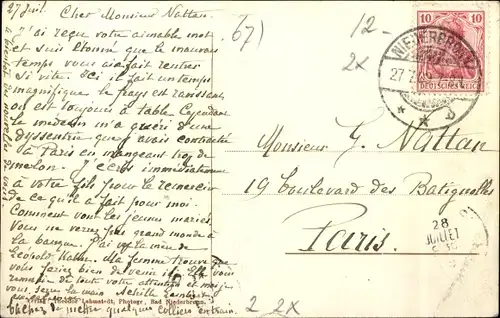 27 Juil.
Cher Monsieur Nattan.
J'ai reçu votre aimable mot
et suis étonné que le mauvais
temps vous aie fait rentrer
si vite. Ici il fait un temps
magnifique le pays est ravissant
on est toujours à table. Cependant
le médecin m'a guéri d'une
dyssenterie que j'avais contractée
à Paris en mangeant trop de
melon. J'écris immédiatement
à votre fils pour le remercier
de ce qu'il a fait pour moi.
Comment vont les jeunes mariés
Vous ne verrez pas grand monde à
la banque. J'ai vu la mère de
Léopold Kahn. Ma femme trouve que
vous feriez bien de venir ici. Elle vous
remercie de toute votre attention et moi je
vous serre la main Achille
tachez de nicher quelques colliers en train.
67)
12-
2x
10 10
DEUTSCHES REICH
NIEDERBRONN
27.7.
* * b
Monsieur G. Nattan
19 boulevard des Batignolles
Paris.
28
JUILLET
Lahmstedt, Photogr., Bad Niederbronn.
2 2x